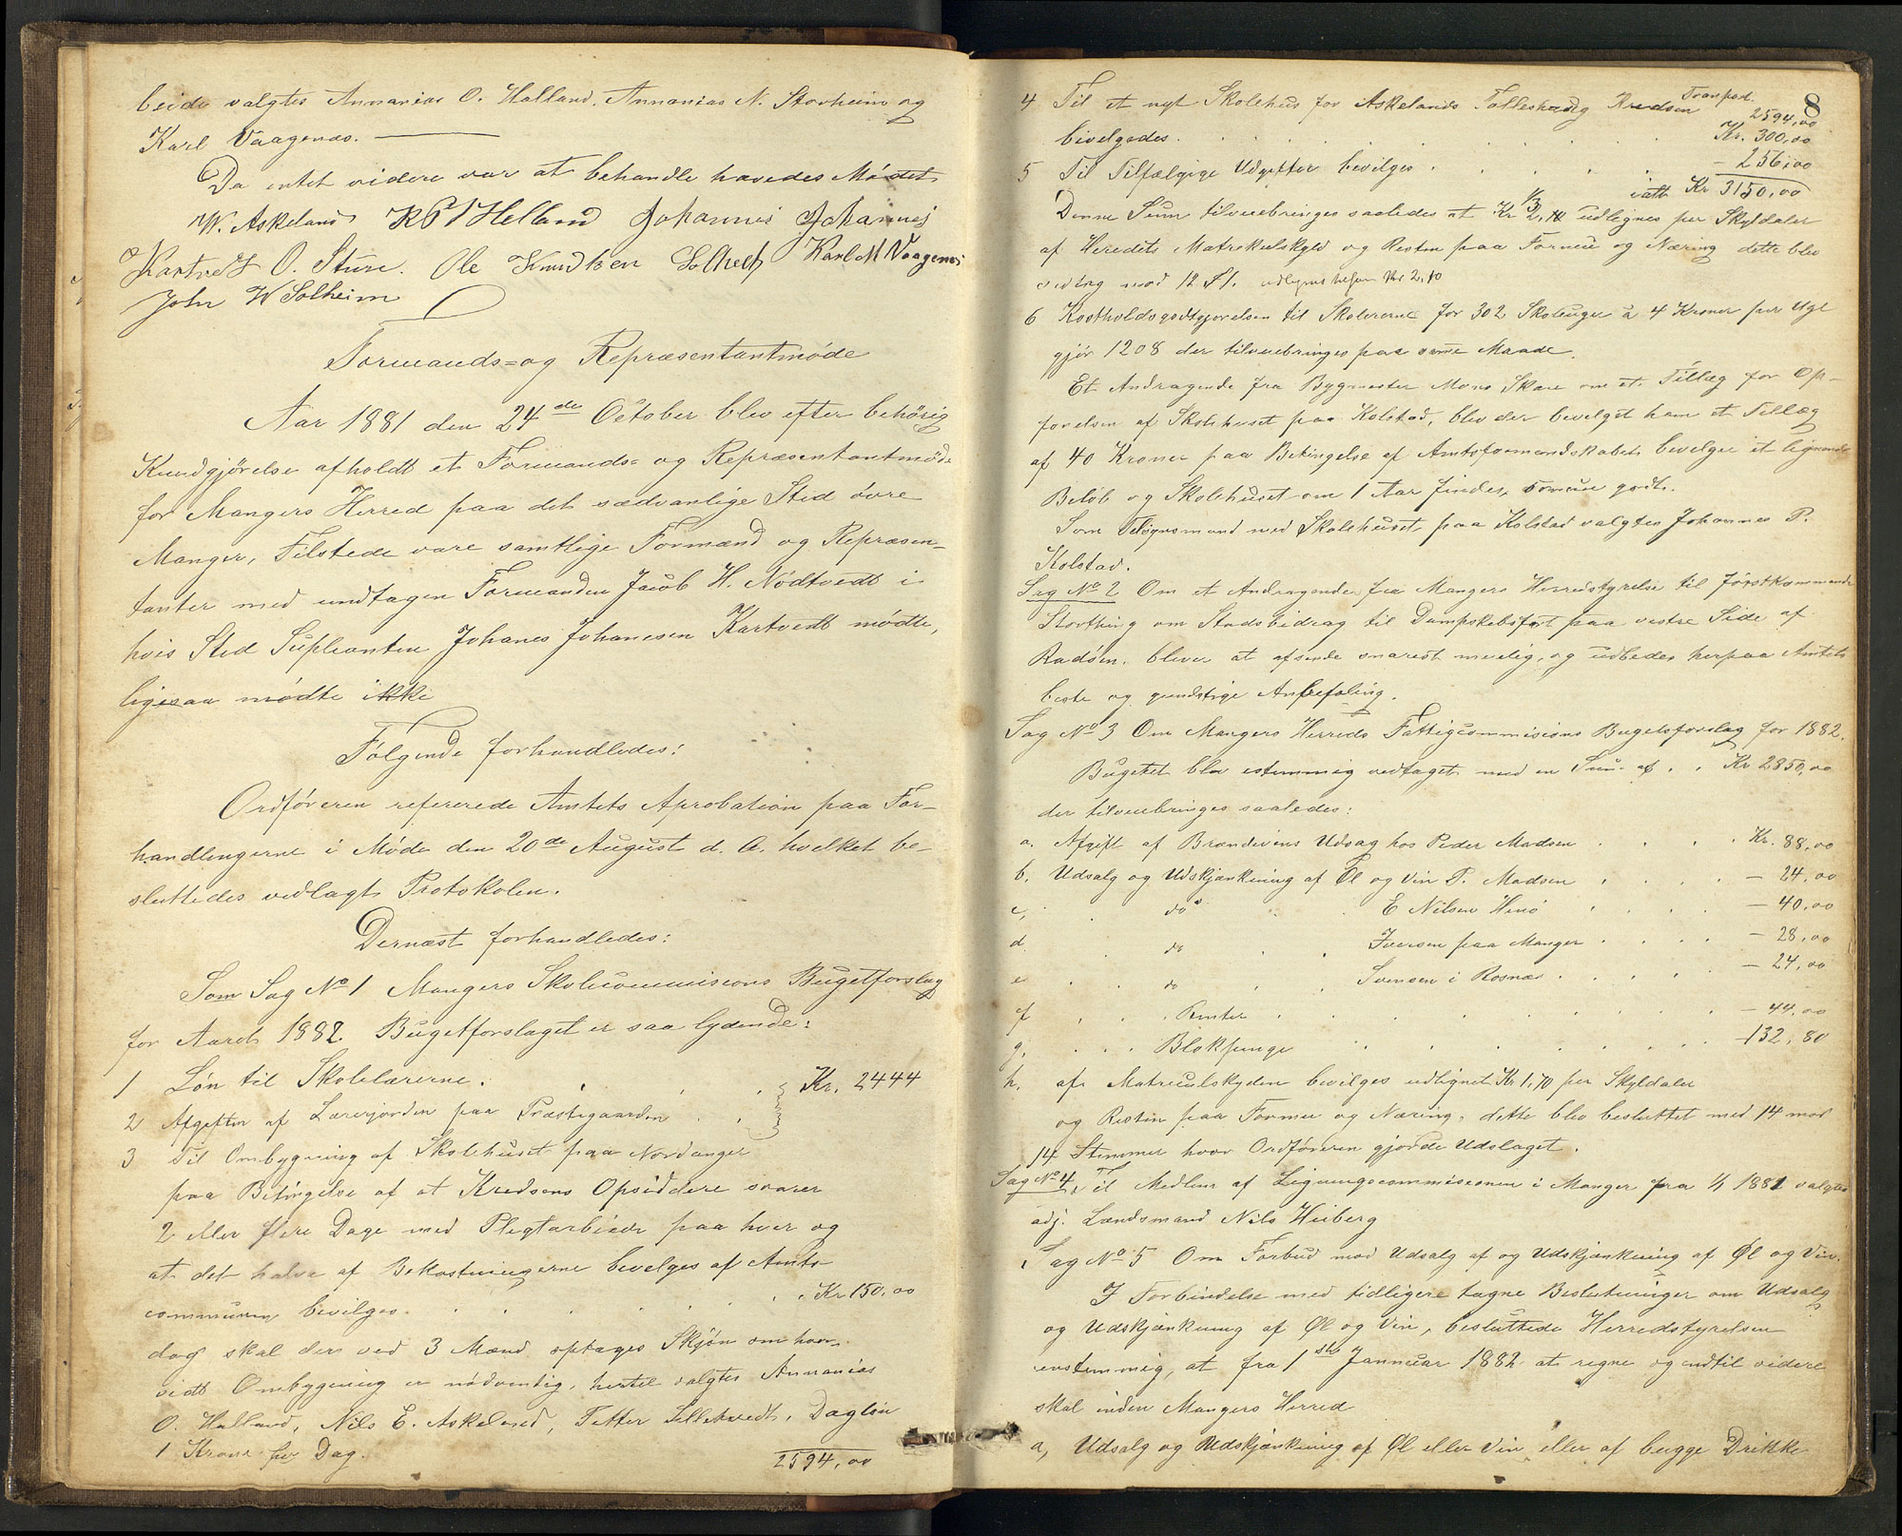 beide valgtes Annanias O. Halland, Annanias N. Storheim og
Karl Vaagenæs.
Da intet videre var at behandle hævedes Mødet
W. Askeland R P I Helland Johannis Johannes
Kartvedt O. Sture. Ole Knudtsen Solhed Karl M Vaagenes
John W Solheim
Formands- og Repræsentantmøde
Aar 1881 den 24de October blev efter behörig
Kundgjörelse afholdt et Formands- og Repræsentantmöde
for Mangers Herred paa det sædvanlige Sted övre
Manger, Tilstede vare samtlige Formænd og Repræsen-
tanter med undtagen Formanden Jacob H. Nödtvedt i
hvis Sted Supleanten Johanes Johanesen Kartvedt mödte,
ligesaa mödte ikke
Fölgende forhandledes:
Ordföreren refererede Amtets Aprobation paa For-
handlingerne i Möde den 20de August d. A. hvilket be-
sluttedes vedlagt Protokolen.
Dernæst forhandledes:
Som Sag No 1 Mangers Skolecommisions Bugetforslag
for Aaret 1882. Bugetforslaget er saa lydende:
1 Lön til Skolelærerne. Kr. 2444
2 Afgiften af Lærerjorden paa Præstegaarden
3 Til Ombygning af Skolehuset paa Nordanger
paa Betingelse af at Kredsens Opsiddere svarer
2 eller flere Dage med Pligtarbeide paa hver og
at det halve af Bekostningerne bevilges af Amts-
communen bevilges. Kr 150,00
dog skal der ved 3 Mænd optages Skjön om hvor-
vidt Ombygning er nödvendig, hertil valgtes Annanias
O. Halland, Nils E. Askeland, Petter Sellekvedt, Daglön
1 Krone per Dag.
2594,00
8
Transport
4 Til et nyt Skolehus for Askelands Kredsen 2594,00
bevilgedes. Kr. 300,00
5 Til Tilfælgige Udgifter bevilges - 256,00
ialt Kr 3150,00
Denne Sum tilveiebringes saaledes at Kr 2,10 udlignes per Skyldaler
af Heredets Matrekulskyld og Resten paa Formue og Næring dette blev
vedtog mod 12 St.
6 Kostholdsgodtgjorelsen til Skolererne for 302 Skoleuger a 4 Kroner per Uge
gjör 1208 der tilveiebringes paa samme Maade.
Et Andragende fra Bygmester Mons Skare om et Tillæg for Op-
förelsen af Skolehuset paa Kolstad, blev der bevilget ham et Tillæg
af 40 Kroner paa Betingelse af Amtsformandskabet bevilger et lignende
Belöb og Skolehuset om 1 Aar findes godt.
Som Tilsynsmand med Skolehuset paa Kolstad valgtes Johannes P.
Kolstad.
Sag No 2 Om et Andragende fra Mangers Herredstyrelse til förstkommende
Storthing om Stadsbidrag til Dampskebsfart paa vestre Side af
Radöen, bliver at afsende snarest muelig, og udbedes herpaa Amtets
beste og gunstige Anbefaling.
Sag No 3 Om Mangers Herreds Fattigcommisions Bugetsforslag for 1882.
Bugetet blev estemmig vedtaget med en Sum af Kr 2850,00
der tilveiebringes saaledes:
a. Afgift af Brændevins Udsag hos Peder Madsen Kr. 88,00
b. Udsalg og Udskjænkning af Öl og Vin P. Madsen - 24,00
c, do E Nilsen - 40,00
d. do Iversen paa Manger - 28,00
e do Svensen i Rosnæs - 24,00
f Renter - 44,00
g. Blokpenge 132,80
h. af Matreculskylden bevilges udlignet Kr 1,70 per Skyldaler
og Resten paa Formue og Næring, dette blev besluttet med 14 mod
14 Stemmer hvor Ordföreren gjorde Udslaget.
Sag No 4. Til Medlem af Ligningscommisionen i Manger fra 1/1 1882 valgtes
adj. Lændsmand Nils Heiberg
Sag No 5 Om Forbud mod Udsalg af og Udskjænkning af Öl og Vin.
I Forbindelse med tidligere tagne Beslutninger om Udsalg
og Udskjænkning af Öl og Vin, besluttede Herredstyrelsen
enstemmig, at fra 1ste Januar 1882 at regne og indtil videre
skal inden Mangers Herred
a, Udsalg og Udskjænkning af Öl eller Vin eller af begge Drikke